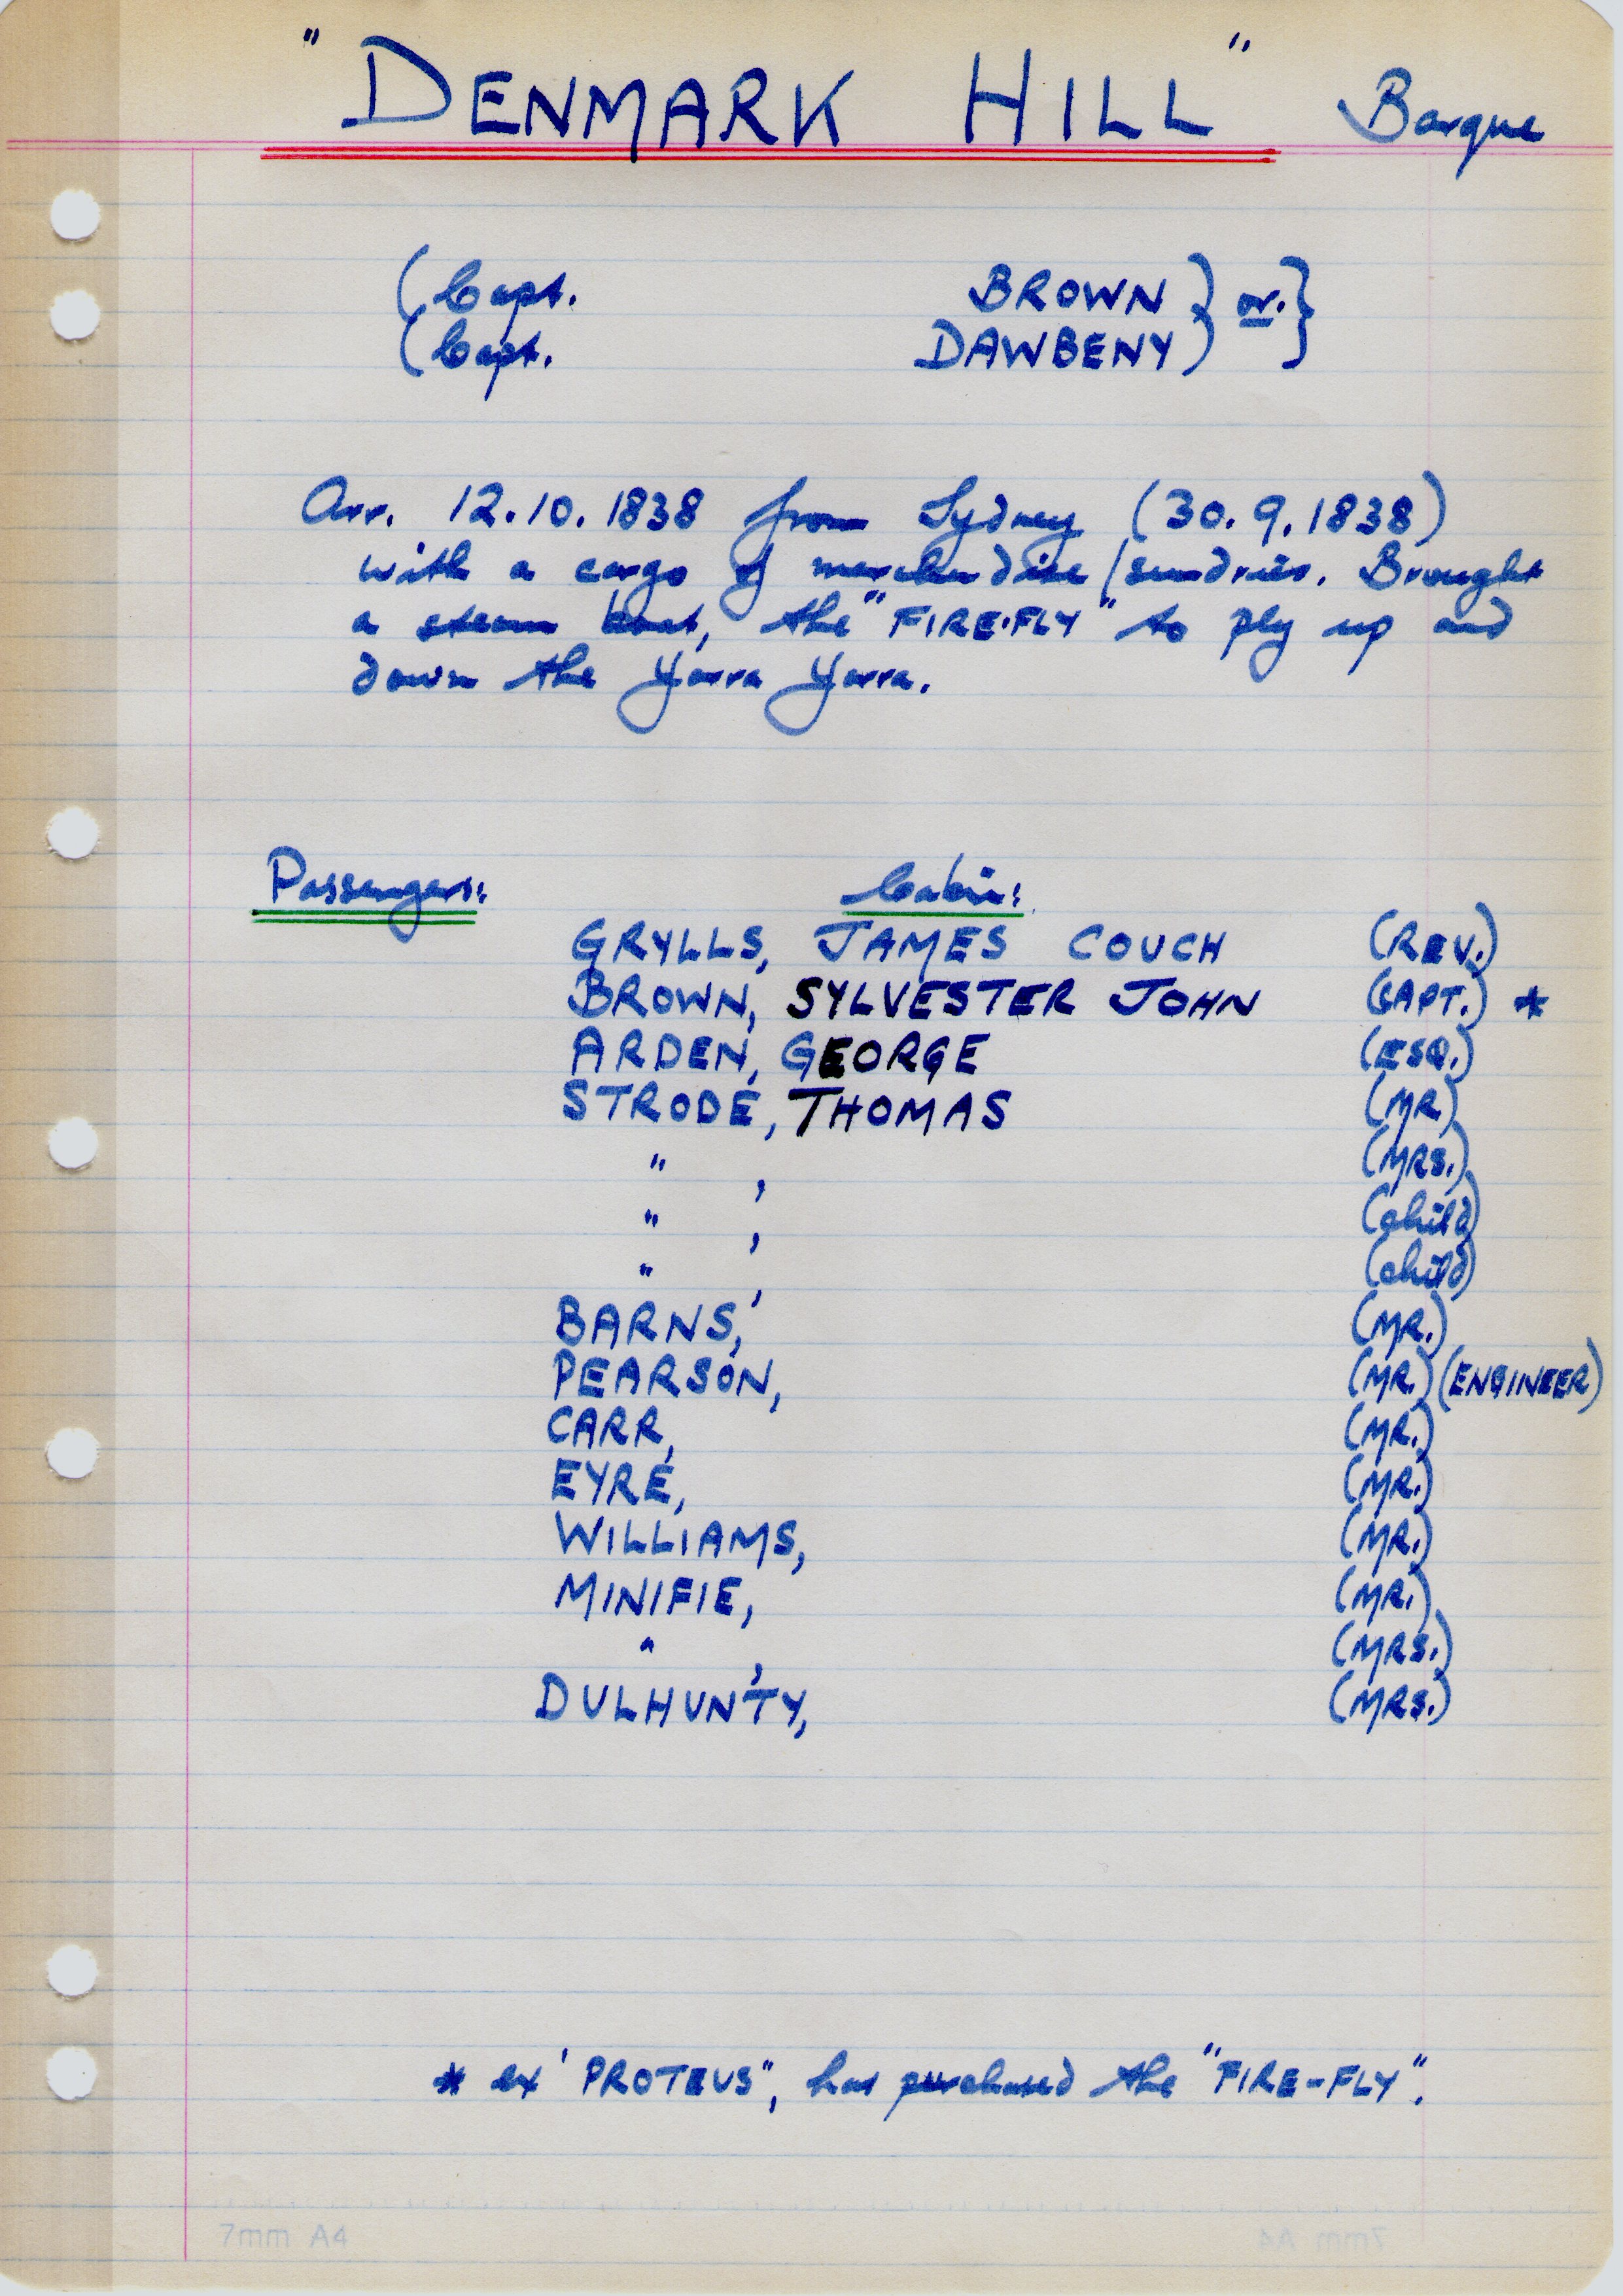 "DENMARK HILL" Barque
(Capt. BROWN } or. }
(Capt. DAWBENY }
Arr. 12.10.1838 from Sydney (30.9.1838)
with a cargo of merchandise/sundries. Brought
a steam boat, the "FIRE-FLY" to ply up and
down the Yarra Yarra.
Passengers: Cabin:
GRYLLS, JAMES COUCH (REV.)
BROWN, SYLVESTER JOHN (CAPT.) *
ARDEN, GEORGE (ESQ.)
STRODE, THOMAS (MR)
" , (MRS.)
" , (child)
" , (child)
BARNS, (MR.)
PEARSON, (MR.) (ENGINEER)
CARR, (MR.)
EYRE, (MR.)
WILLIAMS, (MR.)
MINIFIE, (MR.)
" , (MRS.)
DULHUNTY, (MRS.)
* ex 'PROTEUS", has purchased the "FIRE-FLY".
7mm A4